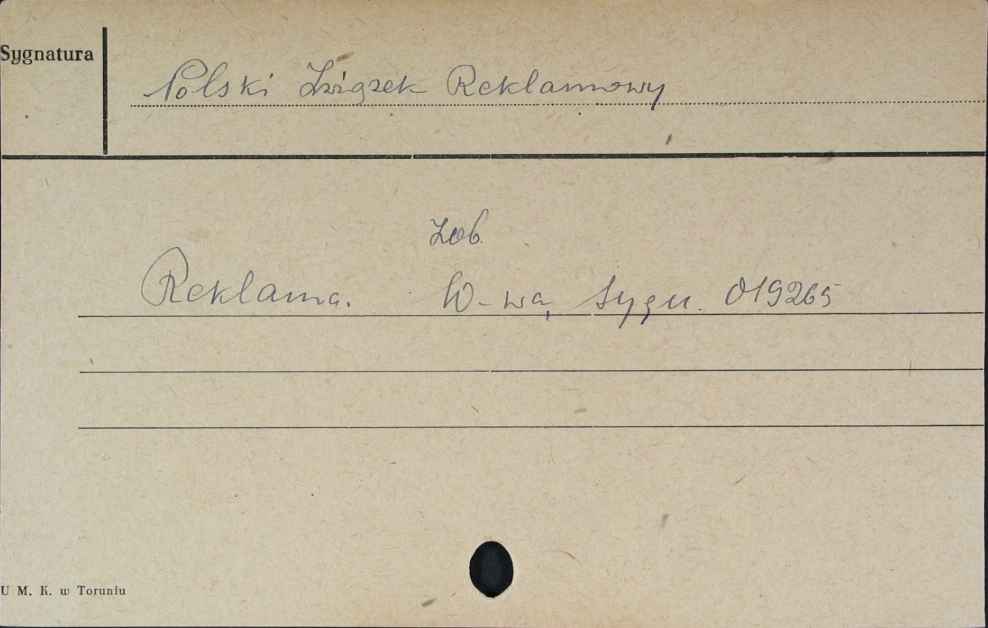 Sygnatura
Polski Związek Reklamowy
Zob.
Reklama. W-wa, Sygn. 019265
U M. K. w Toruniu